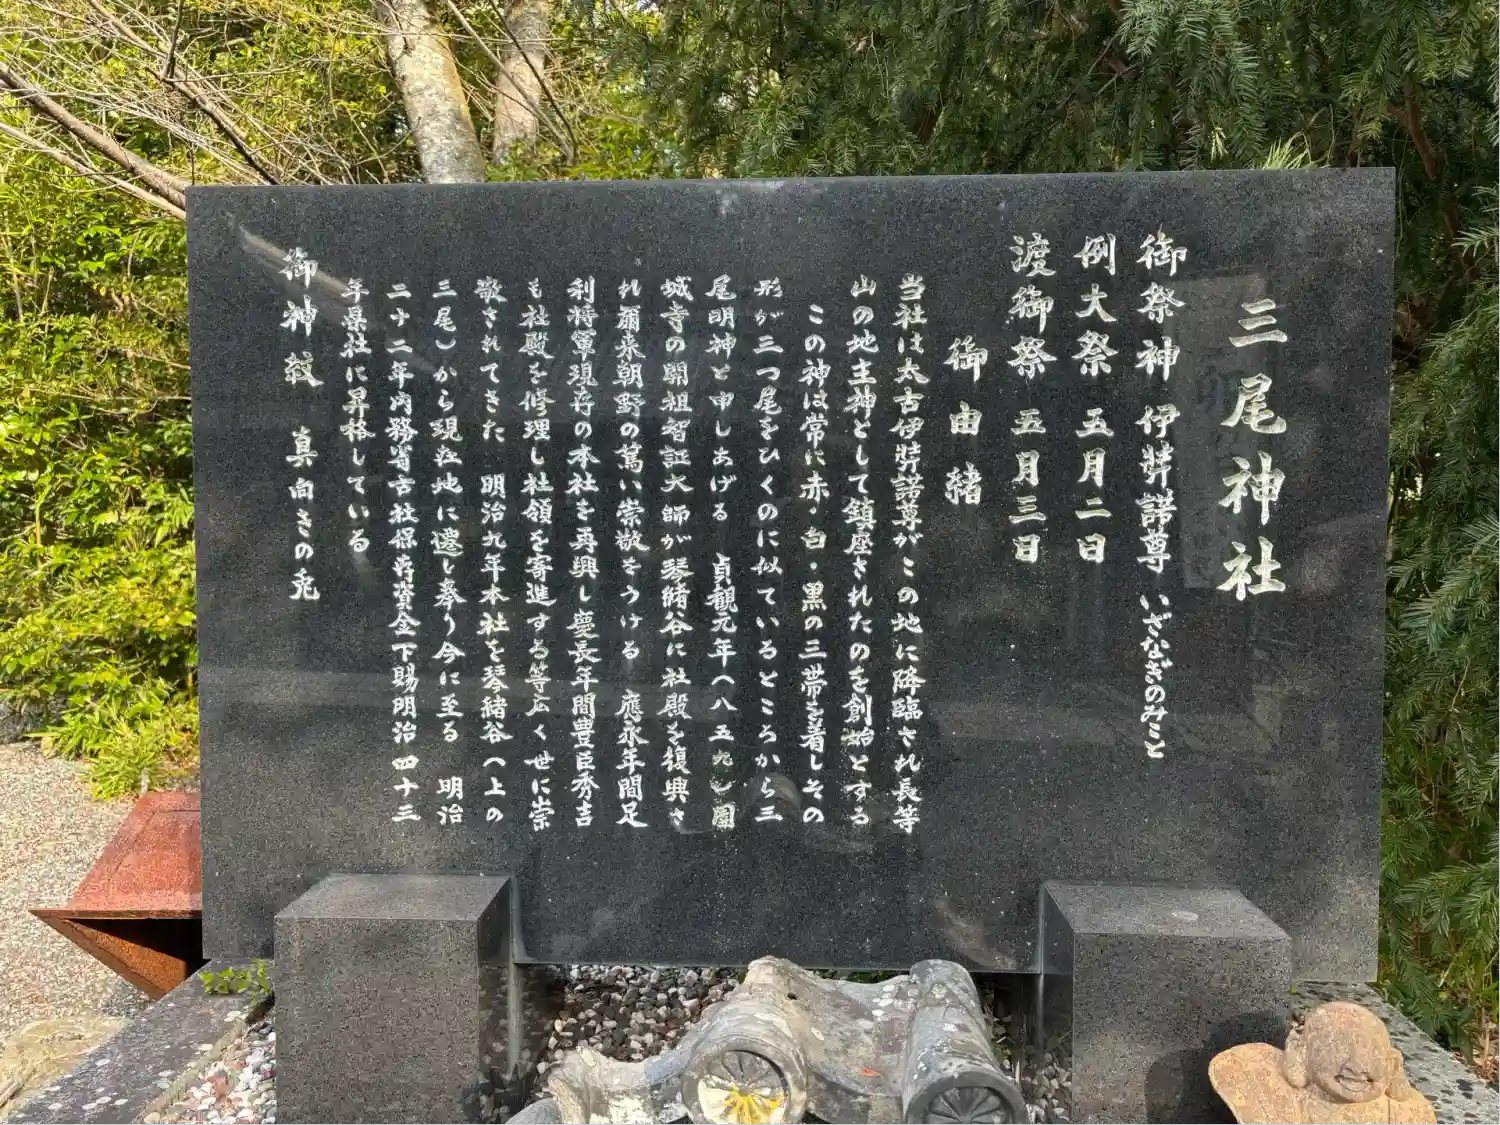 三尾神社
御祭神 伊弉諾尊 いざなぎのみこと
例大祭 五月二日
渡御祭 五月三日
御由緒
当社は太古伊弉諾尊がこの地に降臨され長等
山の地主神として鎮座されたのを創始とする
この神は常に赤・白・黒の三帯を着しその
形が三つ尾をひくのに似ているところから三
尾明神と申しあげる 貞観元年(八五九)園
城寺の開祖智証大師が琴緒谷に社殿を復興さ
れ爾来朝野の篤い崇敬をうける 應永年間足
利将軍現存の本社を再興し慶長年間豊臣秀吉
も社殿を修理し社領を寄進する等広く世に崇
敬されてきた 明治九年本社を琴緒谷(上の
三尾)から現在地に遷し奉り今に至る 明治
二十二年内務省古社保存資金下賜明治四十三
年県社に昇格している
御神紋 真向きの兎